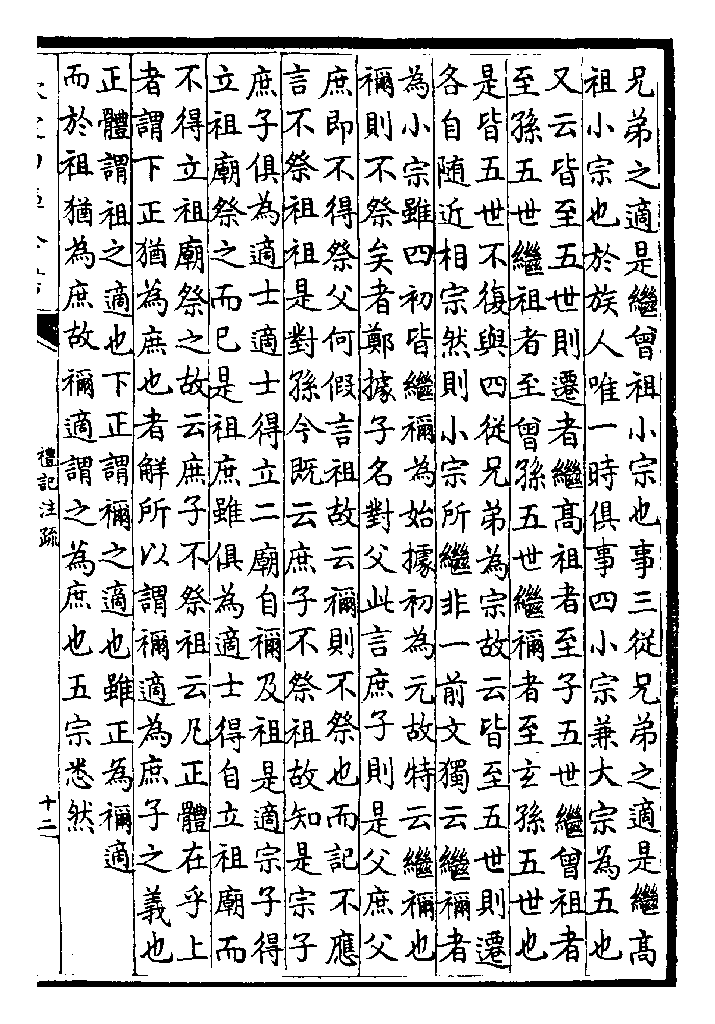 兄弟之適是繼曾祖小宗也事三從兄弟之適是繼髙
祖小宗也於族人唯一時俱事四小宗兼大宗為五也
又云皆至五世則遷者繼髙祖者至子五世繼曾祖者
至孫五世繼祖者至曾孫五世繼禰者至玄孫五世也
是皆五世不復與四從兄弟為宗故云皆至五世則遷
各自随近相宗然則小宗所繼非一前文獨云繼禰者
為小宗雖四初皆繼禰為始據初為元故特云繼禰也
禰則不祭矣者鄭據子名對父此言庶子則是父庶父
庶即不得祭父何假言祖故云禰則不祭也而記不應
言不祭祖祖是對孫今既云庶子不祭祖故知是宗子
庶子俱為適士適士得立二廟自禰及祖是適宗子得
立祖廟祭之而已是祖庶雖俱為適士得自立祖廟而
不得立祖廟祭之故云庶子不祭祖云凡正體在乎上
者謂下正猶為庶也者解所以謂禰適為庶子之義也
正體謂祖之適也下正謂禰之適也雖正為禰適
而於祖猶為庶故禰適謂之為庶也五宗悉然
禮記注疏
十二